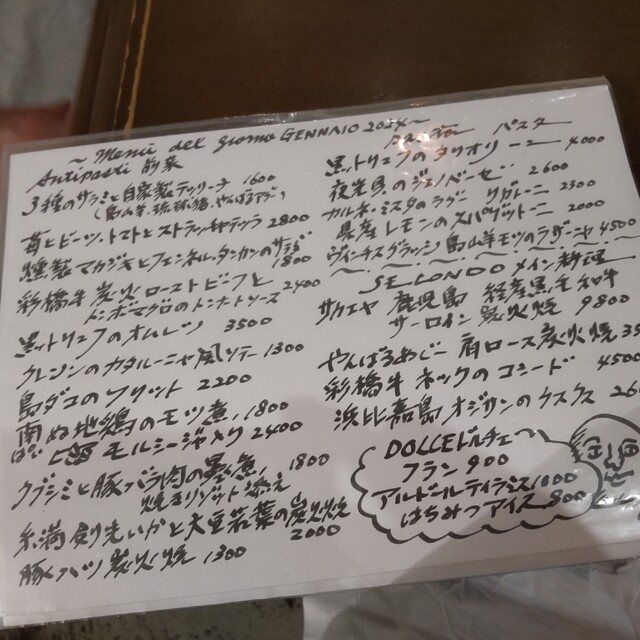 ~ Menù del giorno GENNAIO 2024 ~
Antipasti 前菜
3種のサラミと自家製テリーナ 1600
(島山羊、琉球猪、やんばるアグー)
苺とビーツ、トマトとストラッチャテッラ 2800
燻製マカジキとフェンネル、タンカンのサラダ 1800
彩橋牛 炭火ローストビーフと
トンボマグロのトンナートソース 2400
黒トリュフのオムレツ 3500
クレソンのカタルーニャ風ソテー 1300
島ダコのフリット 2200
南ぬ地鶏のモツ煮 1800
モルシージャ入り 2400
クブシミと豚バラ肉の墨煮、 1800
焼きリゾット添え
糸満 剣先いかと大豆若葉の炭火焼 2000
豚ハツ 炭火焼 1300
パスタ
黒トリュフのタリオリーニ 4000
夜光貝のジェノベーゼ 2600
カルネ・ミスタのラグー リガトーニ 2300
県産レモンのスパゲットーニ 2000
ヴィンチスグラッシ 島山羊モツのラザーヤ 4500
SECONDO メイン料理
サカエヤ 鹿児島 経産黒毛和牛
サーロイン 炭火焼 9800
やんばるあぐー 肩ロース炭火焼
彩橋牛 ネックのコシード
浜比嘉島 オジサンのクスクス
DOLCE ドルチェ~
フラン 900
アルドールティラミス 1000
はちみつアイス 800